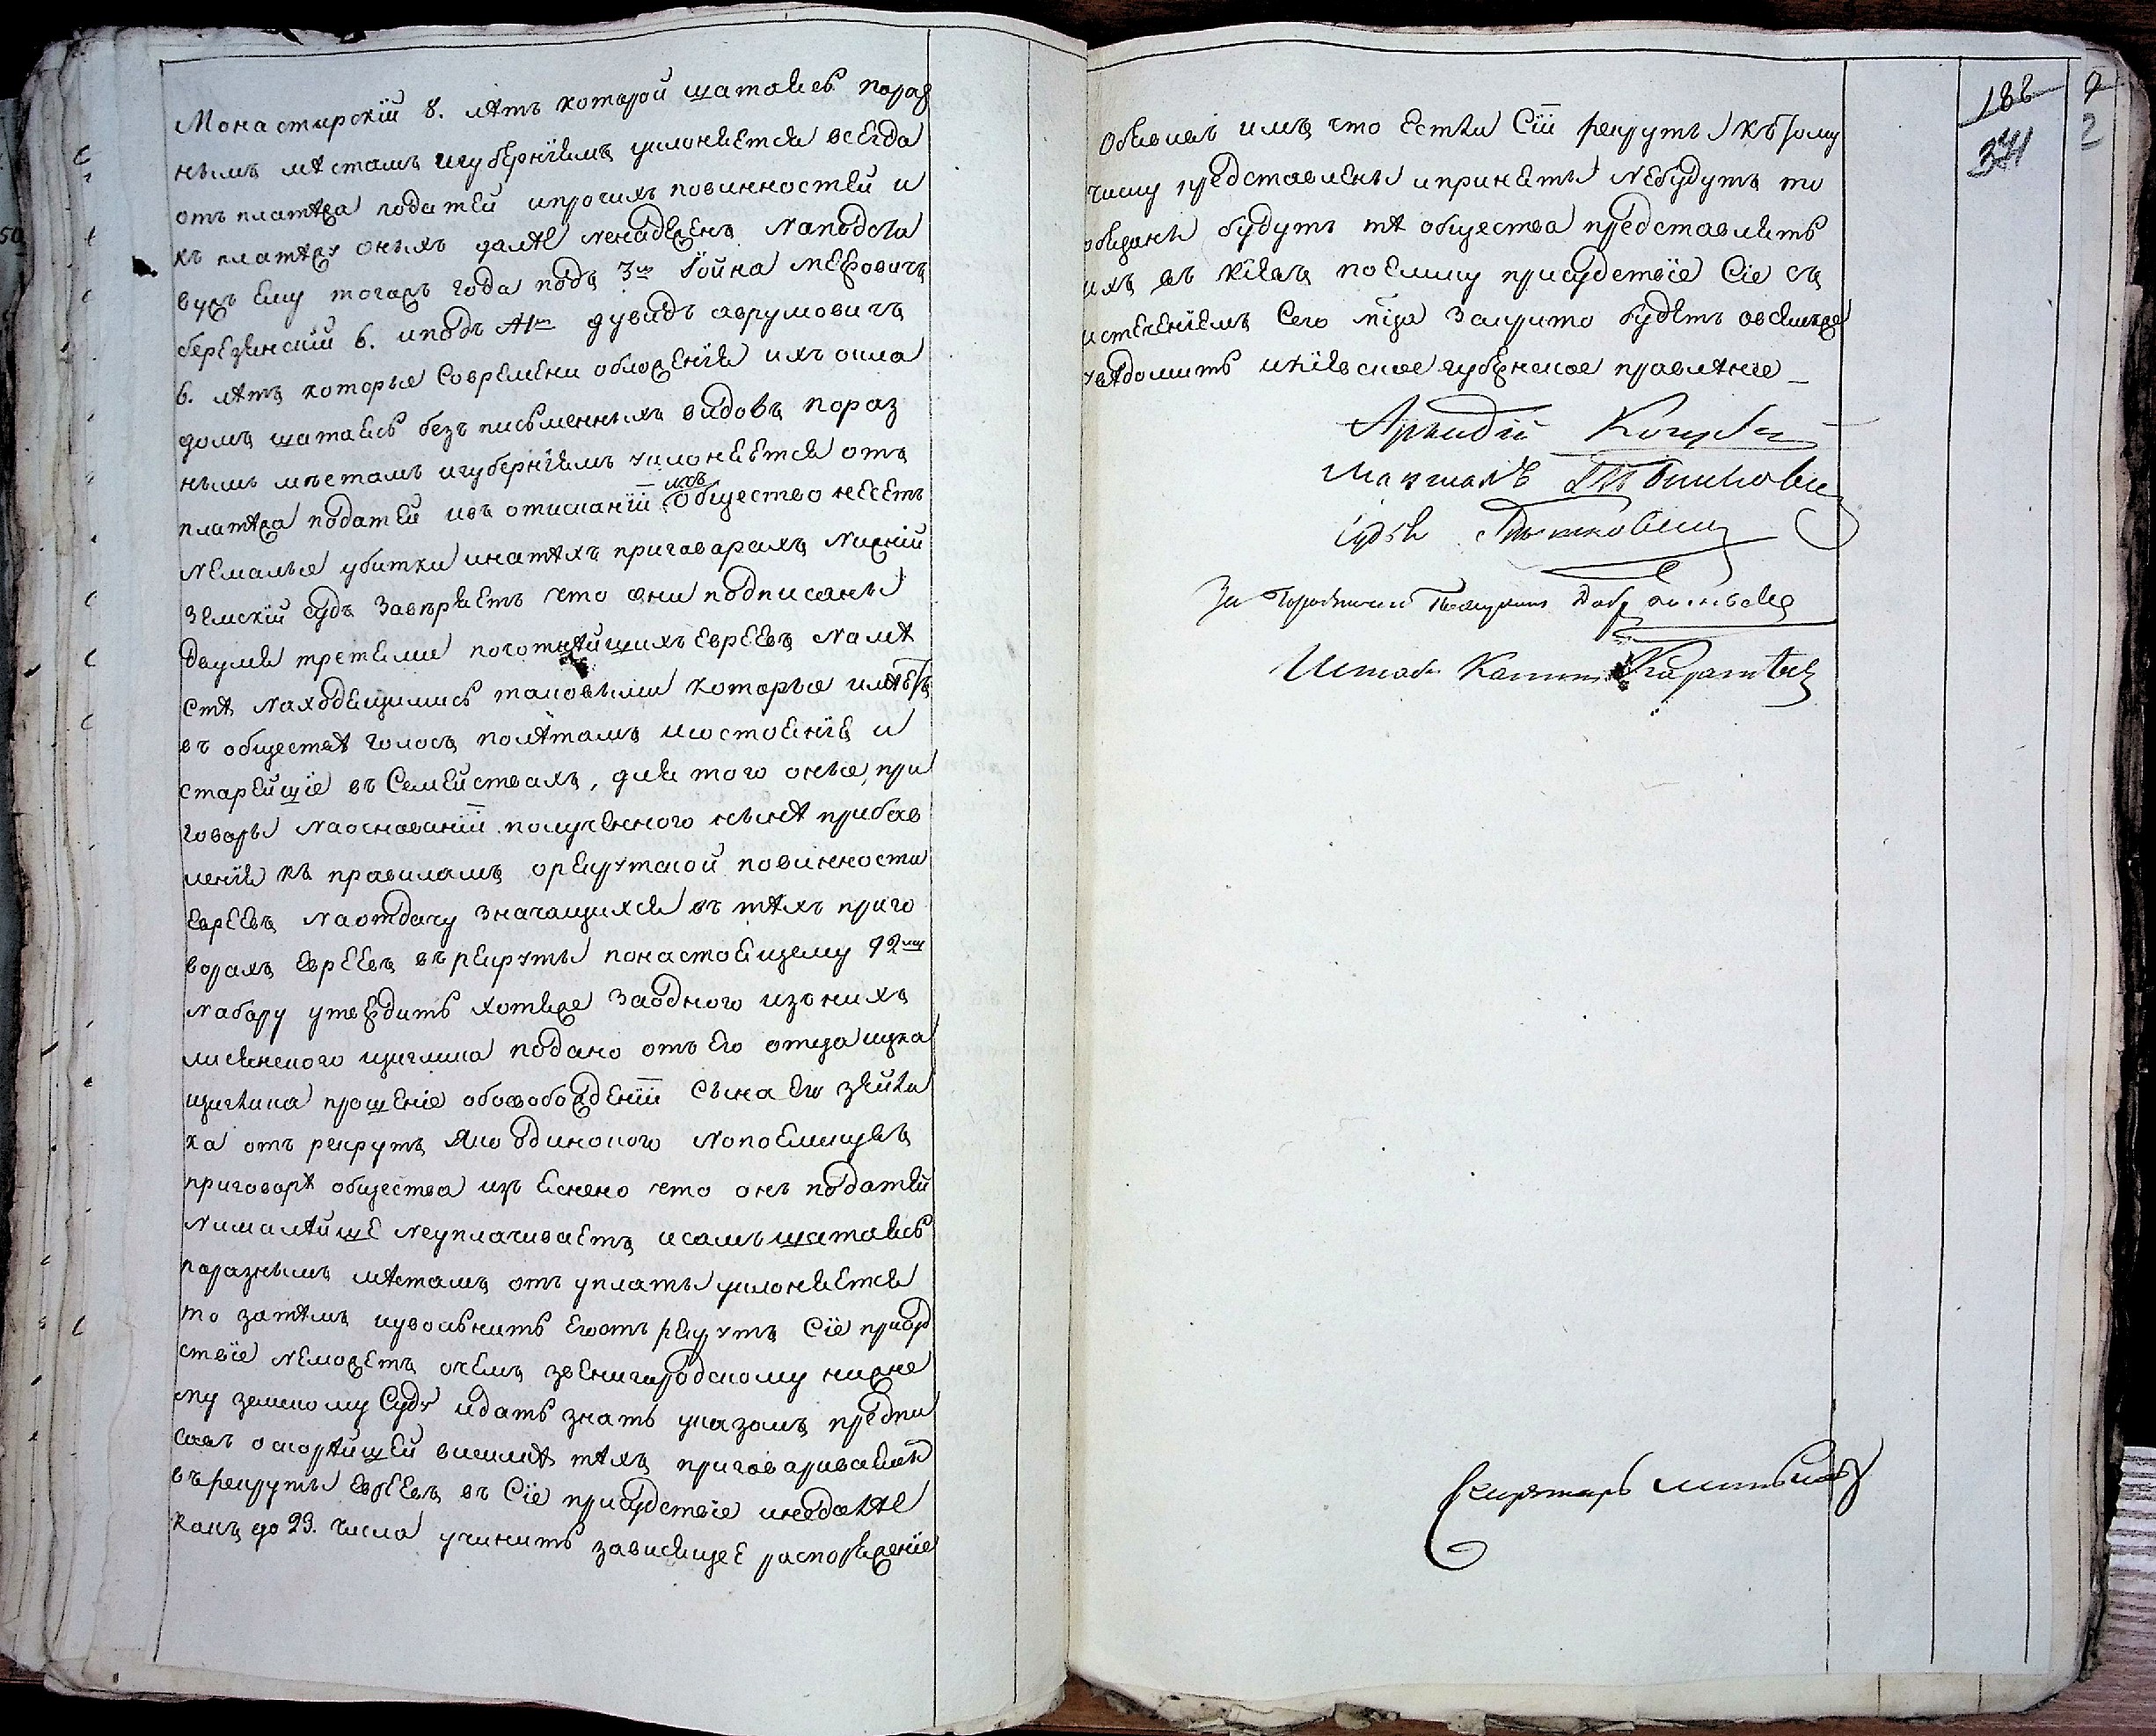 Монастырскій 8. лѣтъ который шатаясь пораз
нымъ мѣстамъ игуберніямъ уклоняется всегда
отъ платежа податей ипрочихъ повинностей и
къ платежу оныхъ далѣе ненадеженъ Наподста
вукъ ему тогожъ года подъ 3м Іойна Мееровичъ
березинскій 6. иподъ 4м дувидъ аврумовичъ
6. лѣтъ которые Современи обложенія ихъ окла
домъ шатаясь безъ письменныхъ видовъ пораз
нымъ мѣстамъ игуберніямъ уклоняются отъ
платежа податей ивъ отисканіи ихъ Общество несетъ
Немалые убитки инатѣхъ приговорахъ Нижній
Земскій Судъ Завѣряетъ что они подписаны
двумя третями почотнѣйшихъ Евреевъ Намѣ
стѣ Находящимись таковыми которые имѣютъ
въ обществѣ голосъ полѣтамъ исостоянію и
старейшіе въ Семействахъ, для того оные при
говоры Наоснованіи полученного нынѣ прибав
ленія къ правиламъ орекрутской повинности
Евреевъ Наотдачу значащихся въ тѣхъ приго
ворахъ Евреевъ врекруты понастоящему 92му
Набору утвердить хотяже Заодного изъ нихъ
лисянского цигмана подано отъ Его отца ицка
прошеніе обосвобожденіи Сына Его
ка отъ рекрутъ Яко одинокого Нопоелику въ
приговорѣ общества изъ Яснено что онъ податей
Нималѣйше Неуплачиваетъ исамъ шатаясь
поразнымъ мѣстамъ отъ уплаты уклоняется
то затѣмъ иуволнить Егоотъ рекрутъ Сіе присуд
ствіе Неможетъ очемъ звенигородскому нижне
му земскому Суду идать знать указомъ предпи
савъ оскорѣйшей висилкѣ тѣхъ приговариваемыхъ
въ рекруты Евреевъ въ Сіе присудствіе инедалѣе
какъ до 23. числа учинить зависящее распоряженіе
Обявивъ имъ что Естли Сіи рекруты къ тому
числу представлены иприняты Небудутъ то
обязаны будутъ тѣ общества представлять
ихъ въ Кіевъ поелику присудствіе Сіе съ
истеченіемъ Сего мца Закрыто будетъ овсемже
увѣдомить икіевское губернское правленіе
Аркадій
Маршалъ
Судья
За Городничего
Штабъ Капит.
188
341
2
Секретарь